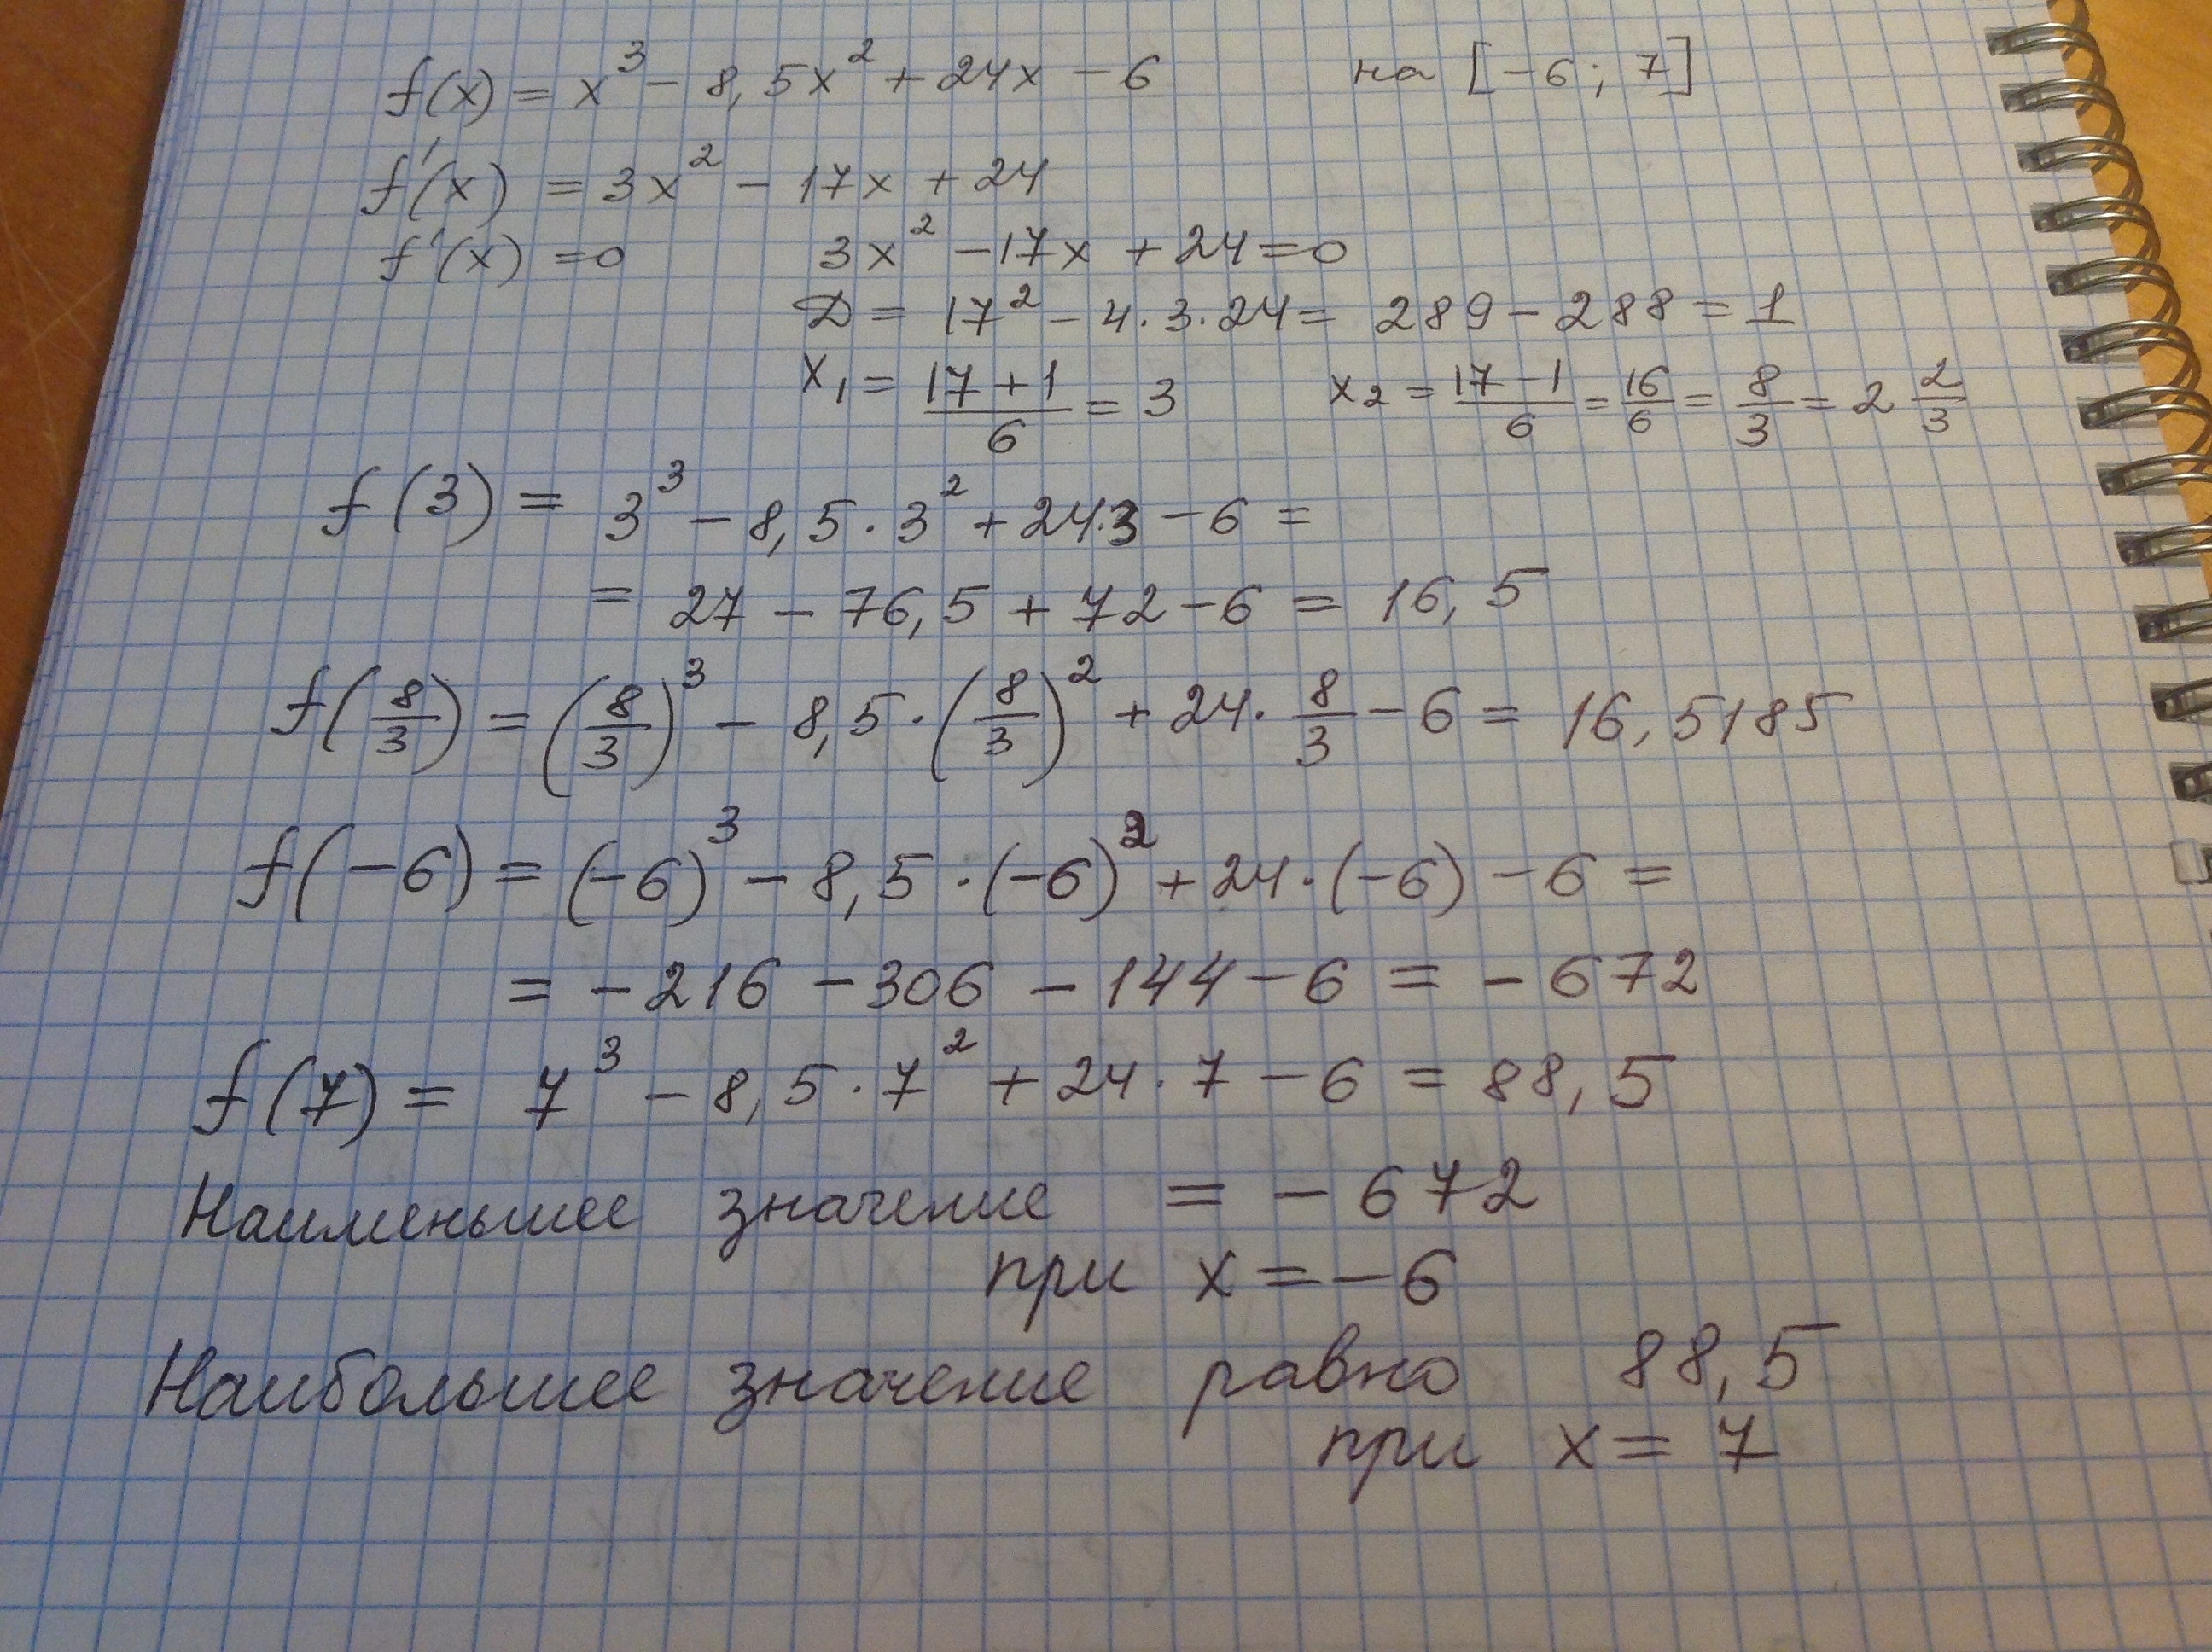 f(x) = x³ - 8,5x² + 24x - 6 на [-6; 7]
f'(x) = 3x² - 17x + 24
f'(x) = 0 3x² - 17x + 24 = 0
D = 17² - 4·3·24 = 289 - 288 = 1
x₁ = (17 + 1)/6 = 3 x₂ = (17 - 1)/6 = 16/6 = 8/3 = 2 2/3
f(3) = 3³ - 8,5·3² + 24·3 - 6 =
= 27 - 76,5 + 72 - 6 = 16,5
f(8/3) = (8/3)³ - 8,5·(8/3)² + 24·8/3 - 6 = 16,5185
f(-6) = (-6)³ - 8,5·(-6)² + 24·(-6) - 6 =
= -216 - 306 - 144 - 6 = -672
f(7) = 7³ - 8,5·7² + 24·7 - 6 = 88,5
Наименьшее значение = -672
при x = -6
Наибольшее значение равно 88,5
при x = 7